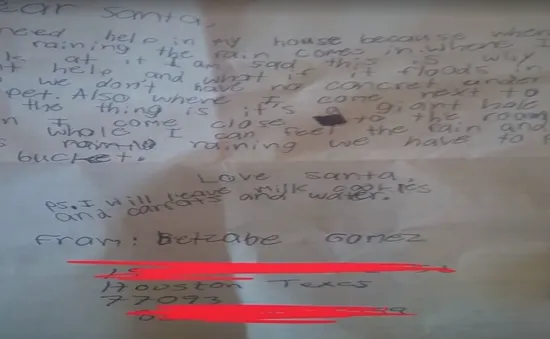 ear Santa,
need help in my house because when
raining the rain comes in. where I
at it I am sad this is why
t help and what if it floods in
we don't have no concret under
pet. Also where I come next to
the thing is it's a giant hole
n I come close to the room
whole I can feel the rain and
s raining we have to
bucket.
Love santa,
ps. I will leave milk cookies
and carrots and water.
From: Betzabe Gomez
Houston Texas
77093